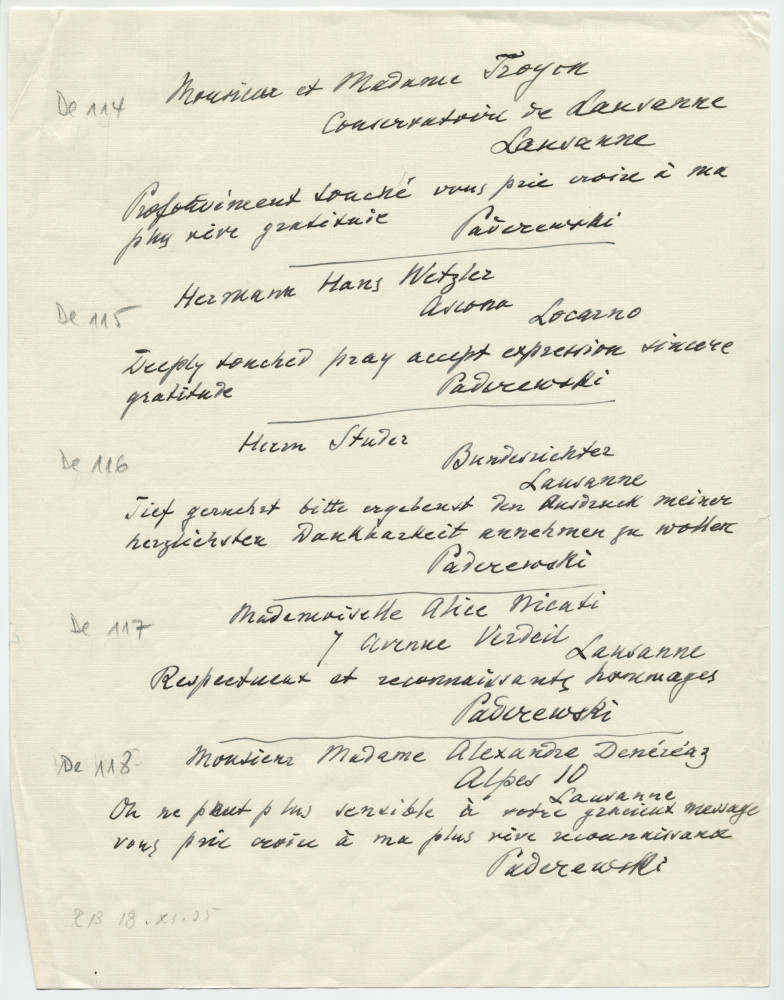 De 114
Monsieur et Madame Troyon
Conservatoire de Lausanne
Lausanne
Profondément touché vous prie croire à ma
plus vive gratitude
Paderewski
De 115
Hermann Hans Wetzler
Ascona Locarno
Deeply touched pray accept expression sincere
gratitude Paderewski
De 116
Herrn Studer
Bundesrichter
Lausanne
Tief geruehrt bitte ergebenst den Ausdruck meiner
herzlichsten Dankbarkeit annehmen zu wollen
Paderewski
De 117
Mademoiselle Alice Nicati
7 Avenue Verdeil Lausanne
Respectueux et reconnaissants hommages
Paderewski
De 118
Monsieur Madame Alexandre Denéréaz
Alpes 10
Lausanne
On ne peut plus sensible à votre gracieux message
vous prie croire à ma plus vive reconnaissance
Paderewski
18.XI.